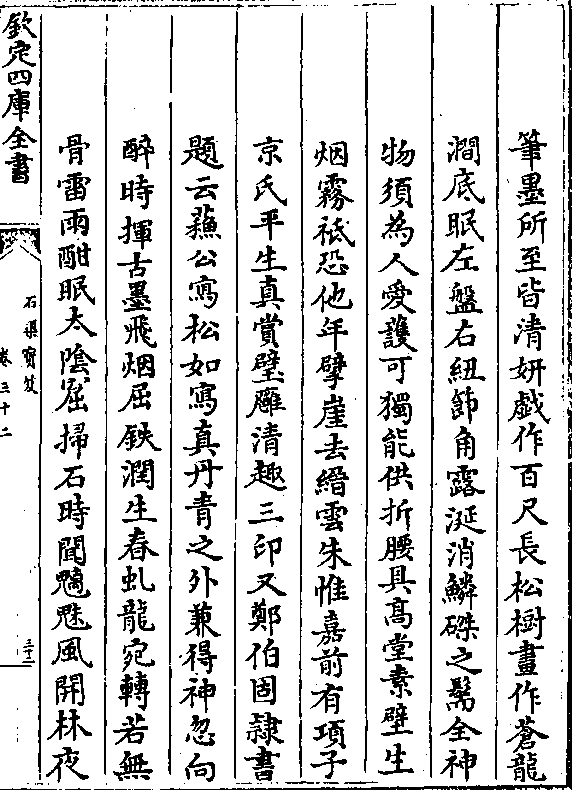 筆墨所至皆清妍戲作百尺長松樹畫作蒼龍
澗底眠左盤右紐飾角露涎消鱗磔之鬣全神
物須為人愛䕶可獨能供折腰具髙堂素壁生
烟霧祗恐他年擘崖去縉雲朱惟嘉前有項子
京氏平生真賞墅廱清趣三印又鄭伯固隷書
題云蘓公寫松如寫真丹青之外兼得神忽向
醉時揮古墨飛烟屈鉄潤生春虬龍宛轉若無
骨雷雨酣眠太隂窟掃石時聞魑魅風開林夜
欽定四庫全書
石渠寳笈
卷三十二
三十二